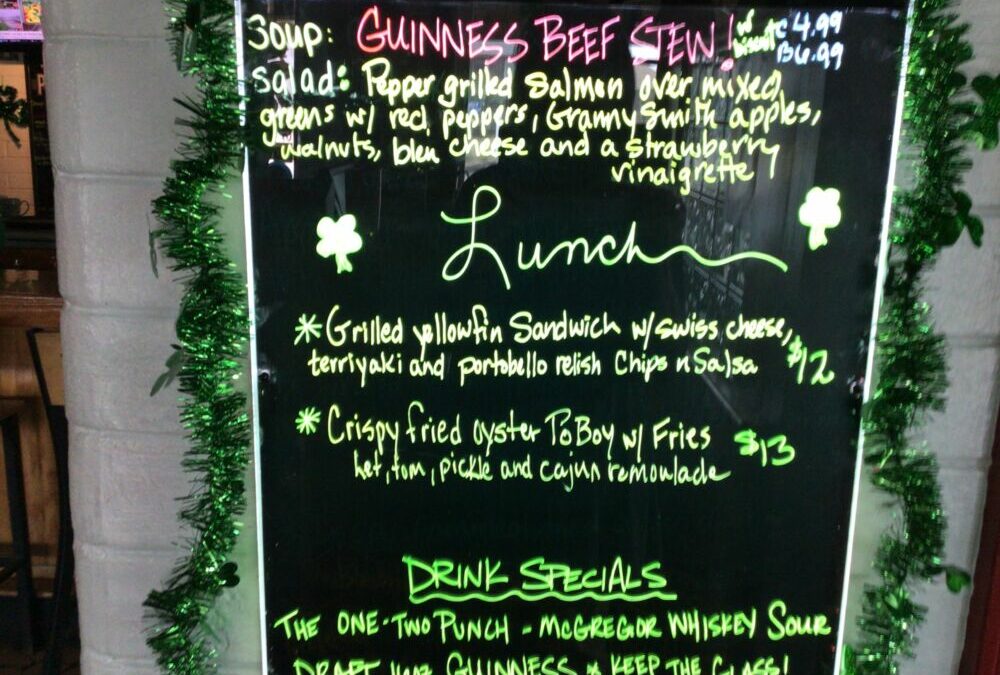 Soup: GUINNESS BEEF STEW! w/ biscuit C 4.99
B 6.99
Salad: Pepper grilled Salmon over mixed
greens w/ red peppers, Granny Smith apples,
walnuts, bleu cheese and a strawberry
vinaigrette
Lunch
* Grilled yellowfin Sandwich w/ swiss cheese,
terriyaki and portobello relish Chips n Salsa $12
* Crispy fried oyster PoBoy w/ Fries $13
let, tom, pickle and cajun remoulade
DRINK SPECIALS
THE ONE-TWO PUNCH - McGREGOR WHISKEY SOUR
DRAFT GUINNESS KEEP THE GLASS!